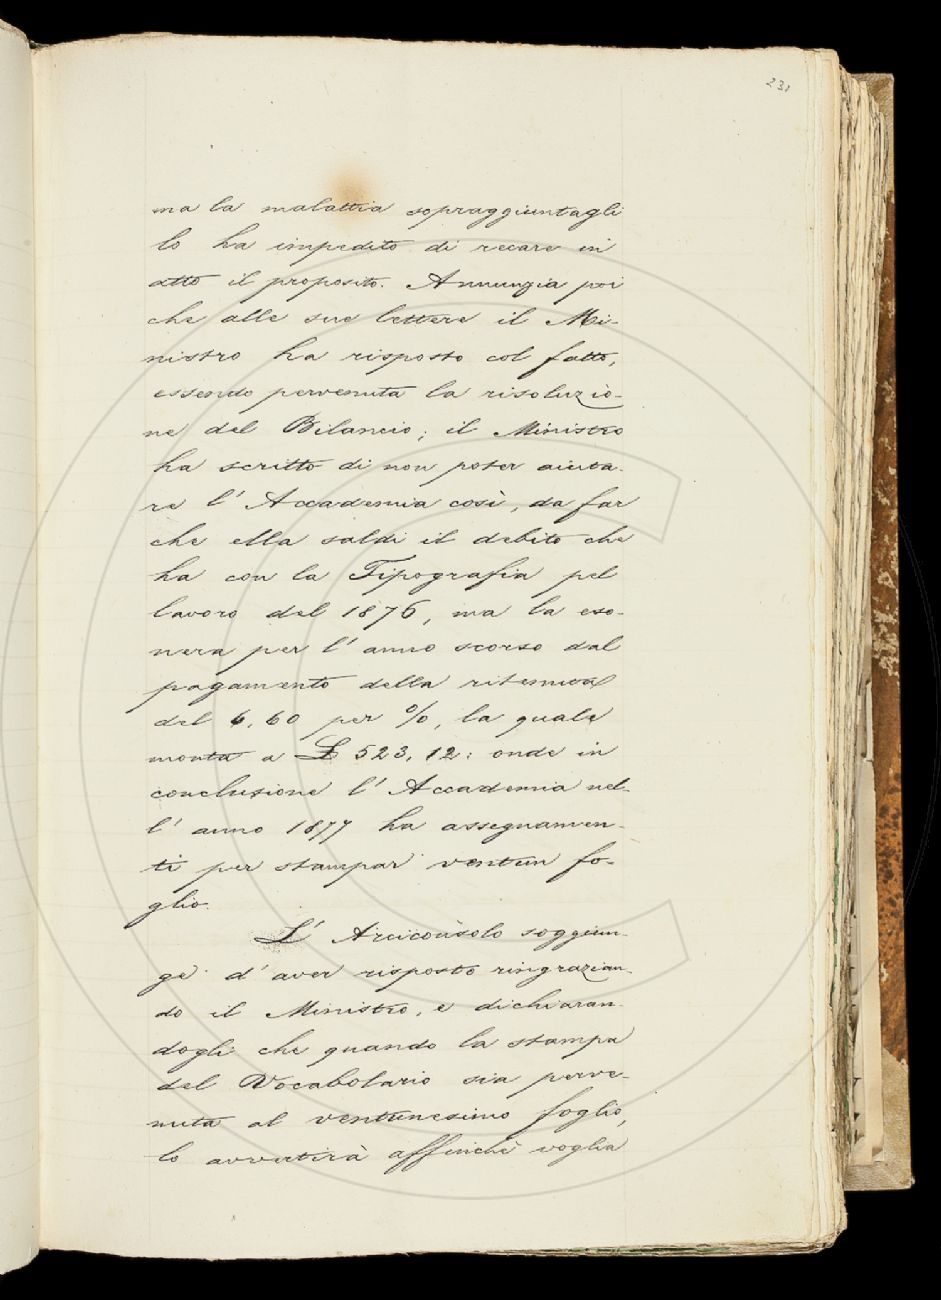 231
ma la malattia sopraggiuntagli
lo ha impedito di recare in
atto il proposito. Annunzia poi
che alle sue lettere il Mi-
nistro ha risposto col fatto,
essendo pervenuta la risoluzio-
ne del Bilancio; il Ministro
ha scritto di non poter aiuta-
re l' Accademia così, da far
che ella saldi il debito che
ha con la Tipografia pel
lavoro del 1876, ma la eso-
nera per l' anno scorso dal
pagamento della ritenuta
del 6,60 per %, la quale
monta a £ 523,12: onde in
conclusione l' Accademia nel-
l' anno 1877 ha assegnamen-
ti per stampar ventun fo-
glio.
L' Arciconsolo soggiun-
ge d' aver risposto ringrazian-
do il Ministro, e dichiaran-
dogli che quando la stampa
del Vocabolario sia perve-
nuta al ventunesimo foglio,
lo avvertirà affinchè voglia